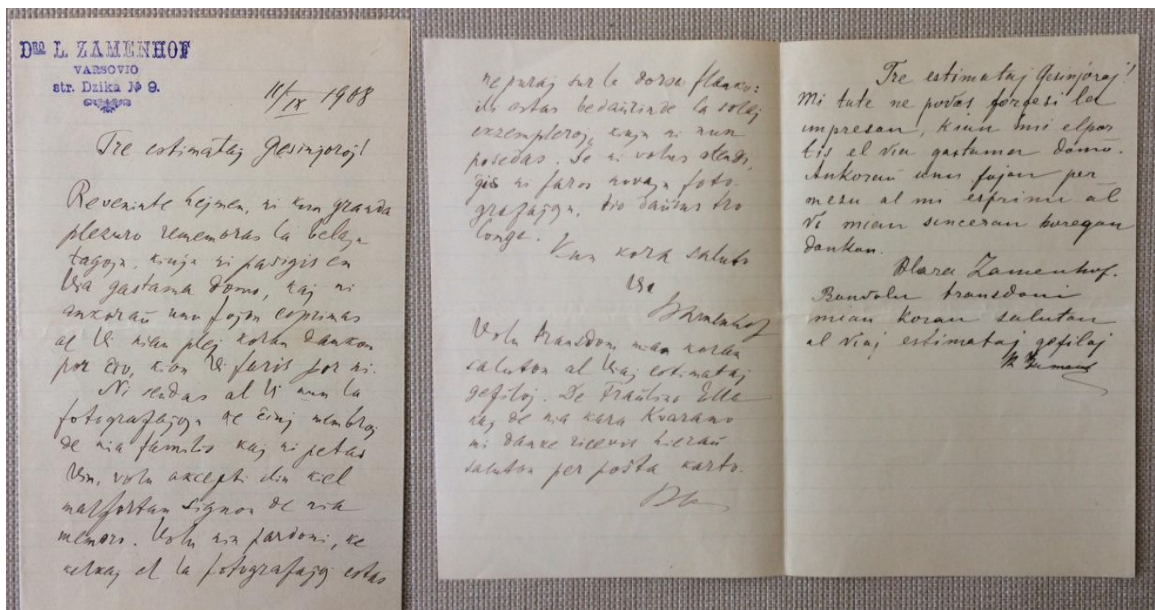 Dro L. ZAMENHOF
VARSOVIO
str. Dzika № 9.
11/IX 1908
Tre estimataj Gesinjoroj!
Reveninte hejmen, ni kun granda
plezuro rememoras la belajn
tagojn, kiujn ni pasigis en
Via gastama domo, kaj ni
ankoraŭ unu fojon esprimas
al Vi nian plej koran dankon
por ĉio, kion Vi faris por ni.
Ni sendas al Vi nun la
fotografaĵojn de ĉiuj membroj
de nia familio kaj ni petas
Vin, volu akcepti ilin kiel
malfortan signon de nia
memoro. Volu nin pardoni, ke
kelkaj el la fotografaĵoj estas
ne puraj sur la dorsa flanko:
ili estas bedaŭrinde la solaj
ekzempleroj, kiujn ni nun
posedas. Se ni volus atendi,
ĝis ni faros novajn foto-
grafaĵojn, tio daŭrus tro
longe.
Kun kora saluto
Via
LZamenhof
Volu transdoni mian koran
saluton al Viaj estimataj
gefiloj. De Fraŭlino Ella
kaj de nia kara Kvaramo
mi danke ricevis hieraŭ
saluton per poŝta karto.
Tre estimataj Gesinjoroj!
Mi tute ne povas forgesi la
impreson, kiun mi elpor
tis el via gastama domo.
Ankoraŭ unu fojon per
mesu al mi esprimi al
Vi mian sinceran koregan
dankon.
Klara Zamenhof.
Bonvolu transdoni
mian koran saluton
al viaj estimataj gefiloj